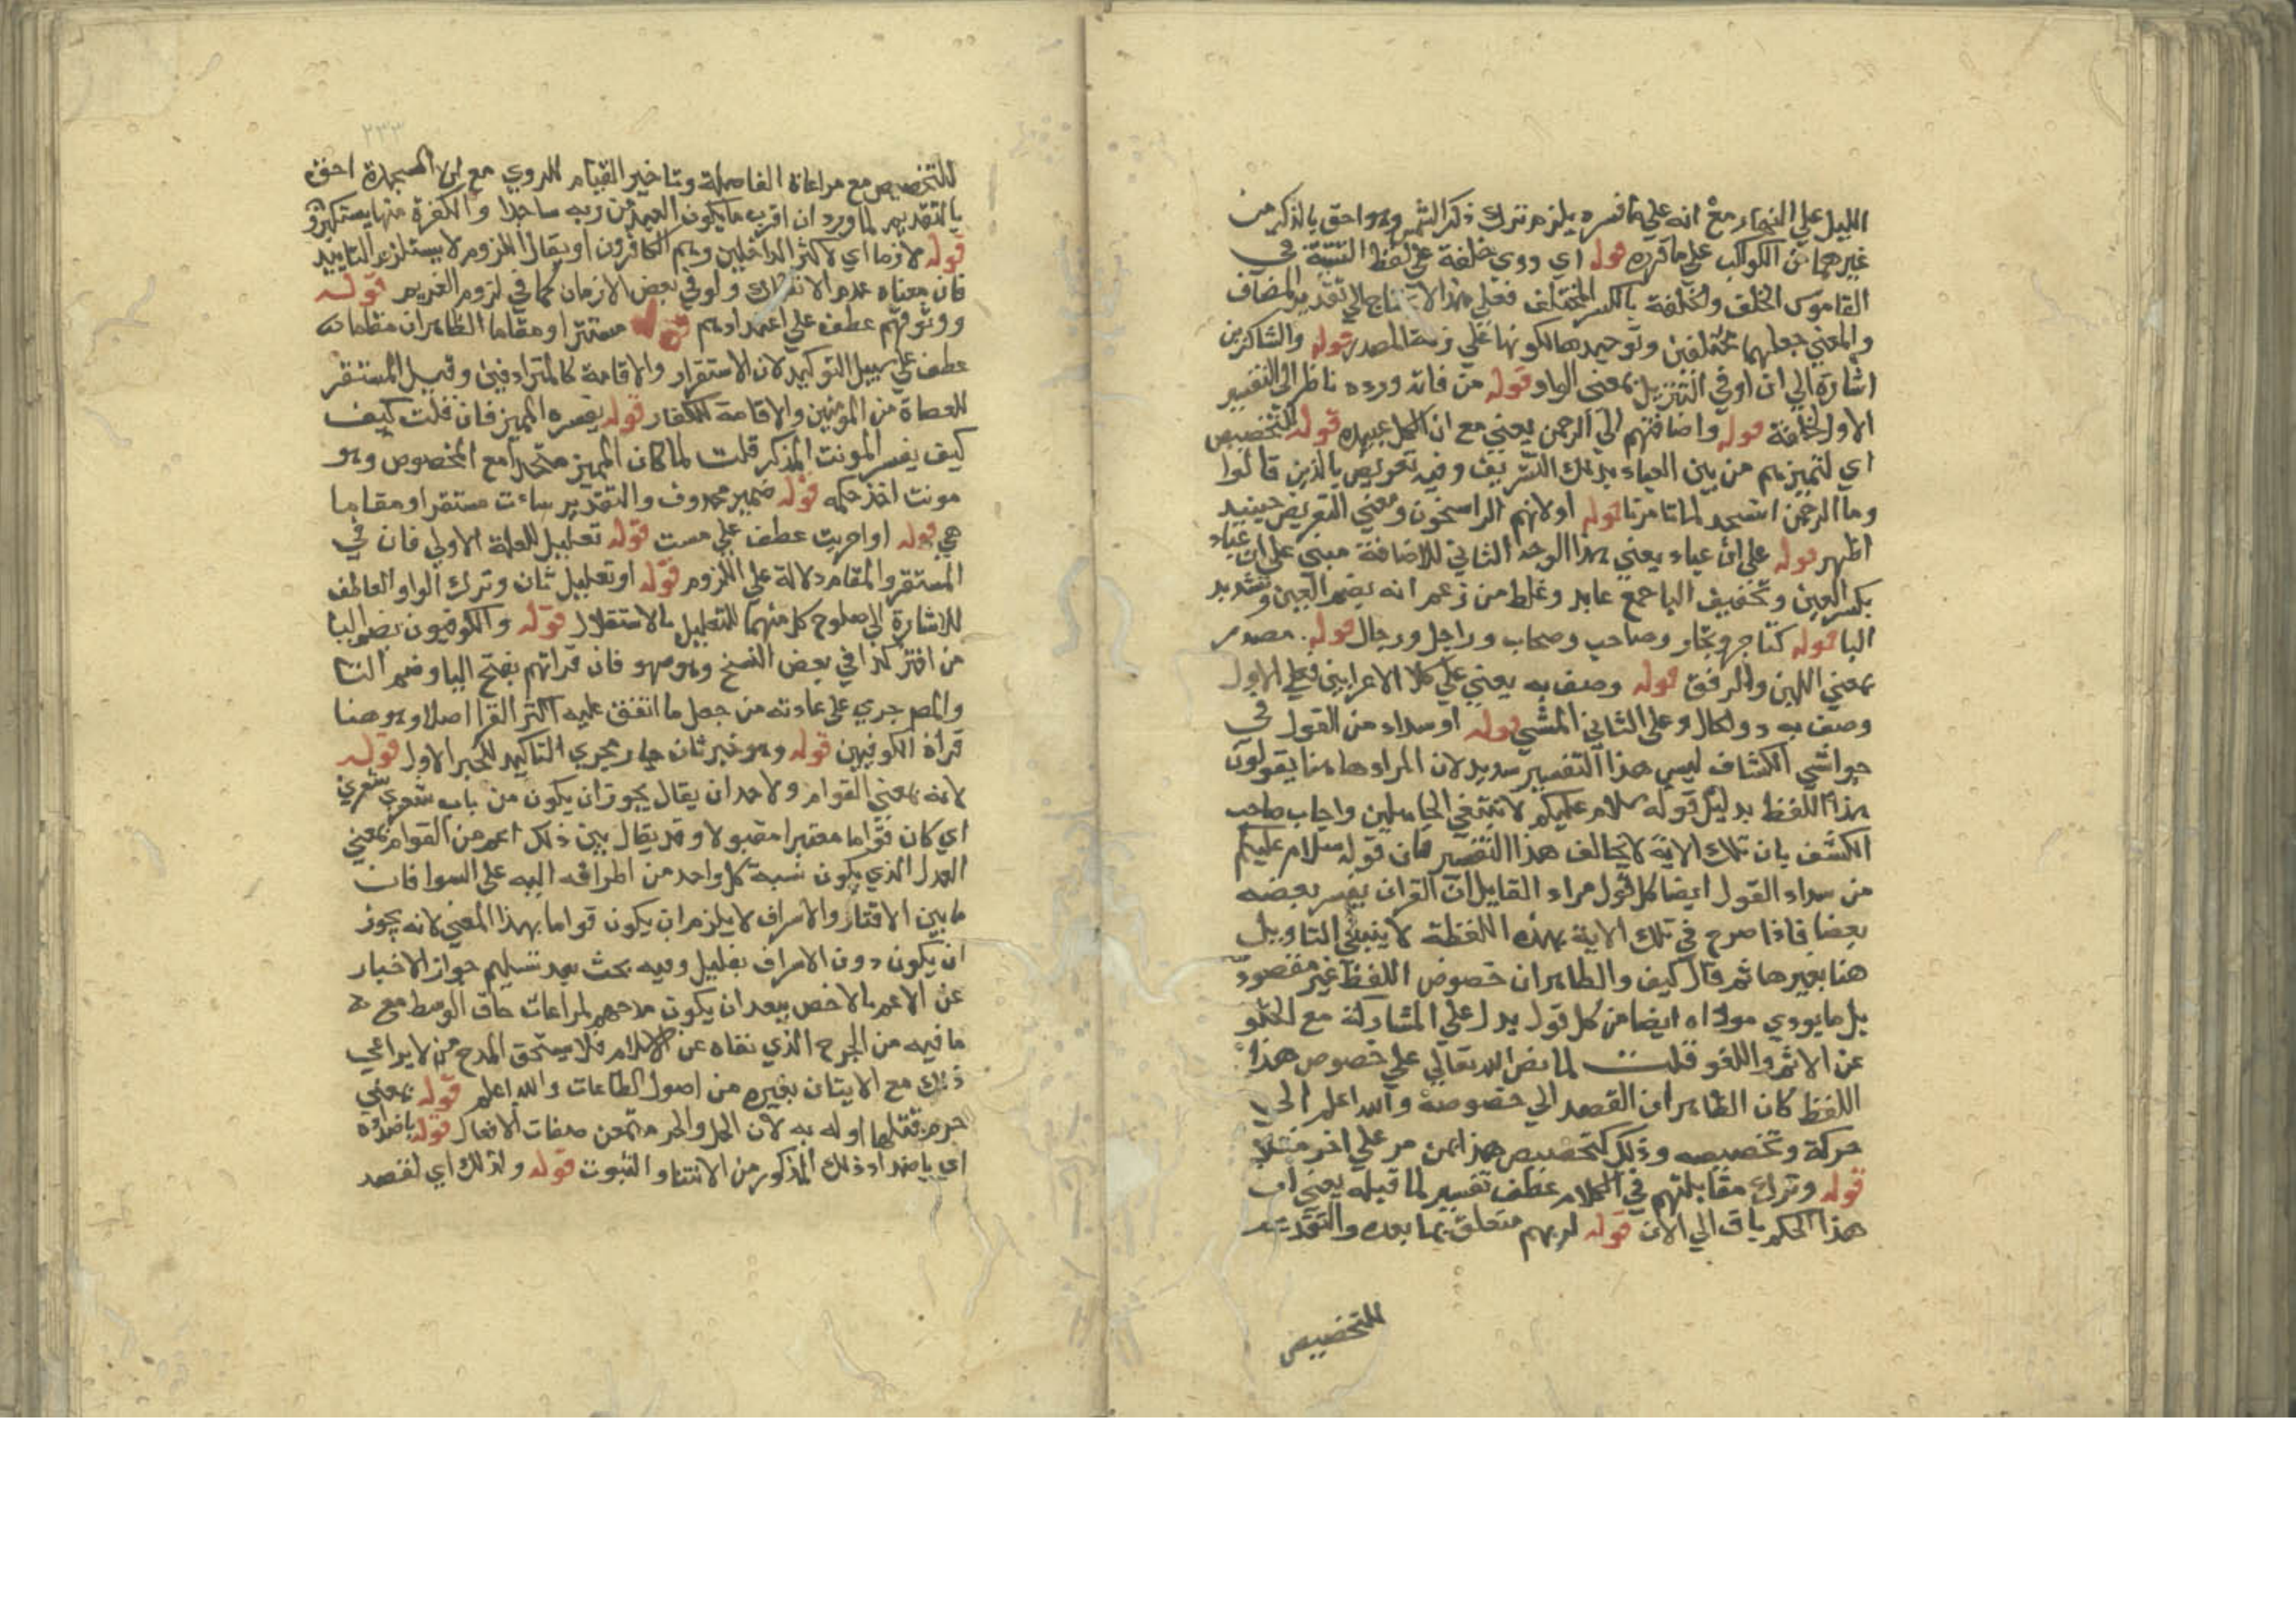 الليل علي النهار مع انه علي ما فسره يلزم ترك ذكر الشمس وهو احق بالذكر من
غيرهما من الكواكب علي ما قرره قوله اي ذوي خلفة علي لفظ التثنية في
القاموس الخلف والخلفة بالكسر المختلف فعلي هذا لا يحتاج الي تقدير المضاف
والمعني جعلهما مختلفين وتوحيدها لكونها علي زنة المصدر قوله والشاكرين
اشارة الي ان او في التنزيل بمعني الواو قوله من فاته ورده ناظر الي التفسير
الاول لخلفة قوله واضافتهم الي الرحمن يعني مع ان الكل عبيده قوله للتخصيص
اي لتميزهم من بين العباد بذلك التشريف وفيه تعريض بالذين قالوا
وما الرحمن انسجد لما تامرنا قوله او لانهم الراسخون ومعني التعريض حينيد
اظهر قوله علي ان عباد يعني هذا الوجه الثاني للاضافة مبني علي ان عباد
بكسر العين وتخفيف البا جمع عابد وغلط من زعم انه بضم العين وتشديد
البا قوله كتاجر وتجار وصاحب وصحاب وراجل ورجال قوله مصدر
بمعني اللين والرفق قوله وصف به يعني علي كلا الاعرابين فعلي الاول
وصف به ذو الحال وعلي الثاني المشي قوله او سداد من القول في
حواشي الكشاف ليس هذا التفسير سديد لان المراد هاهنا يقولون
هذا اللفظ بدليل قوله سلام عليكم لا نبتغي الجاهلين واجاب صاحب
الكشف بان تلك الاية لا يخالف هذا التفسير فان قوله سلام عليكم
من سداد القول ايضا كل قول مراد القايل ان القران يفسر بعضه
بعضا فاذا صرح في تلك الاية بهذه اللفظة لا ينبغي التاويل
هنا بغيرها ثم قال كيف والظاهر ان خصوص اللفظ غير مقصود
بل ما يودي موداه ايضا من كل قول يدل علي المشاركة مع الخلو
عن الاثم واللغو قلت لما نص الله تعالي علي خصوص هذا
اللفظ كان الظاهر ان القصد الي خصوصه والله اعلم الحي
حركة وتخصيصه وذلك كتخصيص هذا بمن مر علي اخر مثلا
قوله وترك مقابلتهم في الكلام عطف تفسير لما قبله يعني ان
هذا الحكم باق الي الان قوله لربهم متعلق بما بعده والتقديم
للتخصيص
٢٣٣
للتخصيص مع مراعاة الفاصلة وتاخير القيام للروي مع ان السجدة احق
بالتقديم لما ورد ان اقرب ما يكون العبد من ربه ساجدا والكفرة عنها يستكبرون
قوله لازما اي لاكثر الداخلين وهم الكافرون او يقال اللزوم لا يستلزم التابيد
فان معناه عدم الانفكاك ولو في بعض الازمان كما في لزوم الغريم قوله
ووثوقهم عطف علي اعتدادهم قوله مستقرا ومقاما الظاهر ان مقاما
عطف علي سبيل التوكيد لان الاستقرار والاقامة كالمترادفين وقيل المستقر
للعصاة من المومنين والاقامة للكفار قوله يفسره المميز فان قلت كيف
كيف يفسر المونث المذكر قلت لما كان المميز متحدا مع المخصوص وهو
مونث اخذ حكمه قوله ضمير محذوف والتقدير ساءت مستقرا ومقاما
هي قوله او احزنت عطف علي مست قوله تعليل للعلة الاولي فان في
المستقر والمقام دلالة علي اللزوم قوله او تعليل ثان وترك الواو العاطف
للاشارة الي صلوح كل منهما للتعليل بالاستقلال قوله والكوفيون بضم اليا
من اقتر كذا في بعض النسخ وهو سهو فان قراتهم بفتح اليا وضم التا
والمص جري علي عادته من جعل ما اتفق عليه اكثر القرا اصلا وهو هنا
قراة الكوفيين قوله وهو خبر ثان جار مجري التاكيد للخبر الاول قوله
لانه بمعني القوام ولاحد ان يقال يجوز ان يكون من باب شعري شعري
اي كان قواما معتبرا مقبولا وقد يقال بين ذلك اعم من القوام بمعني
العدل الذي يكون نسبة كل واحد من اطرافه اليه علي السوا فان
ما بين الاقتار والاسراف لا يلزم ان يكون قواما بهذا المعني لانه يجوز
ان يكون دون الاسراف بقليل وفيه بحث بعد تسليم جواز الاخبار
عن الاعم بالاخص يبعد ان يكون مدحهم لمراعات حاق الوسط مع
ما فيه من الحرج الذي نفاه عن الاسلام فلا يستحق المدح من لا يراعي
ذلك مع الايتان بغيره من اصول الطاعات والله اعلم قوله بمعني
حرم قتلها اوله به لان الحل والحرمة من صفات الافعال قوله باضداده
اي باضداد ذلك المذكور من الانتفا والثبوت قوله ولذلك اي لقصد